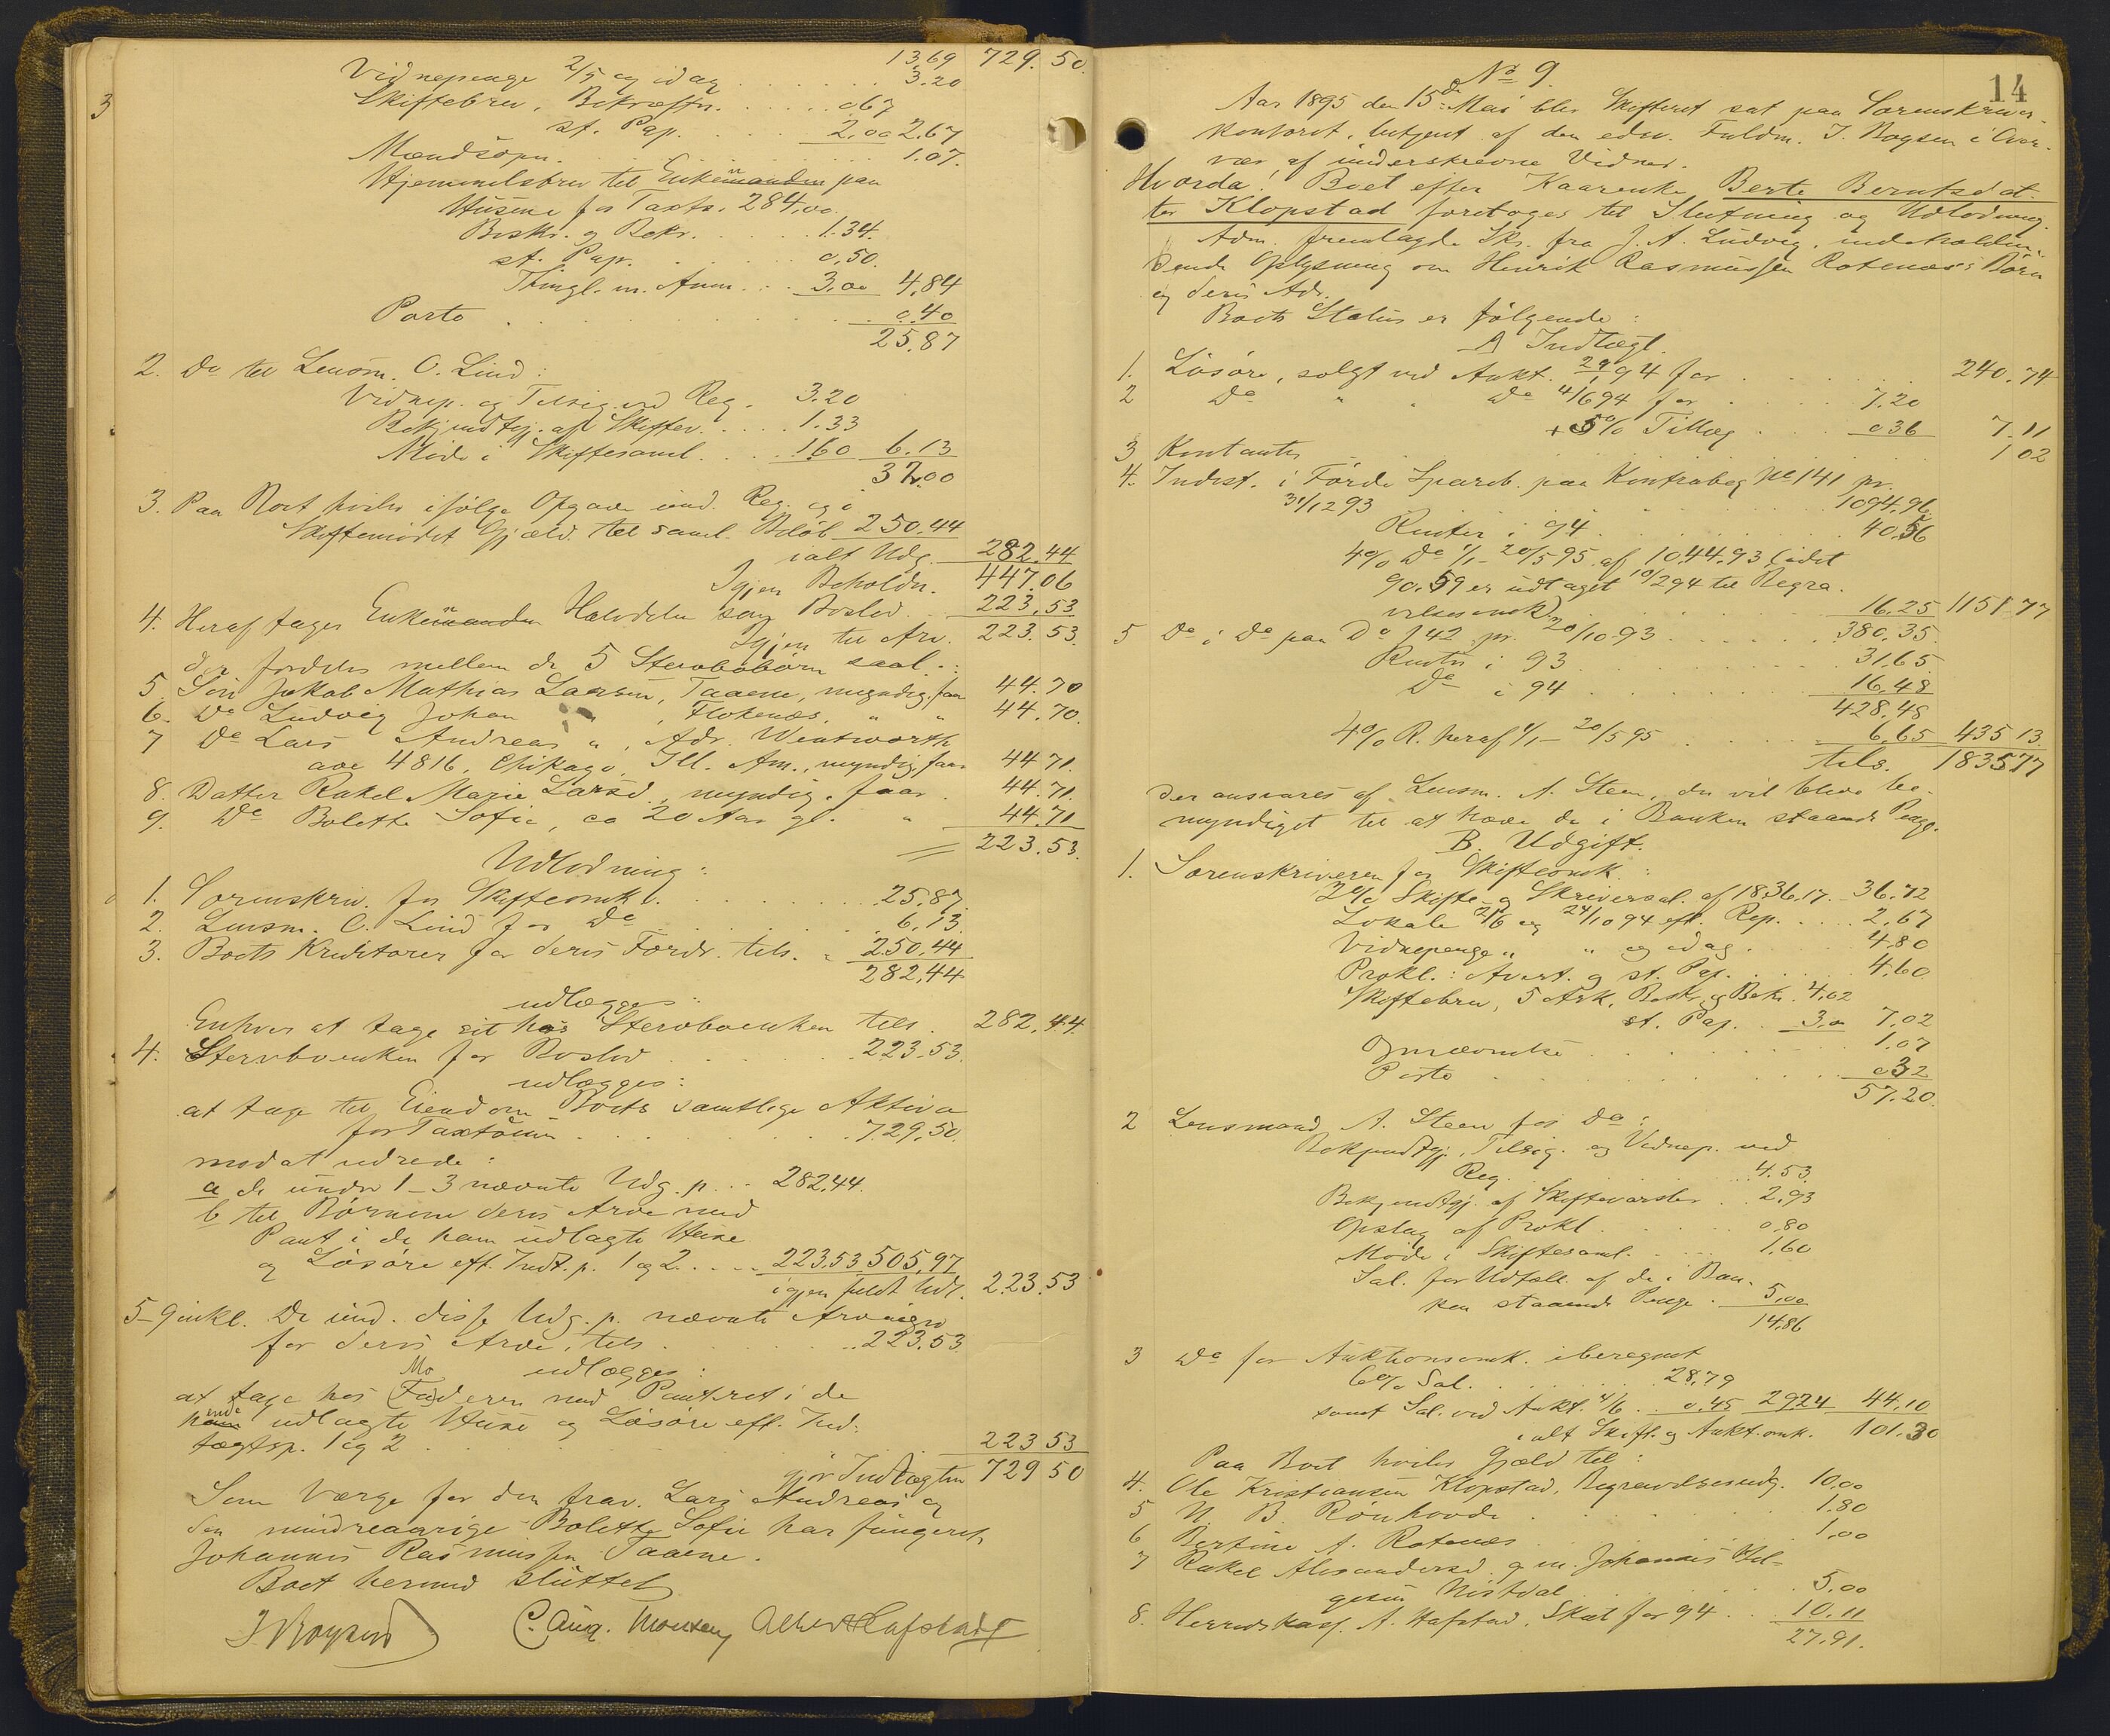 13.69 729.50.
Vidnepenge 2/5 og idag . . . . . 3.20
3
Skiftebrev, Bekræftn. . . . . . 0.67
st. Pap. . . . 2.00 2.67
Mændsopn. . . . . . . 1.07.
Hjemmelsbrev til Enkemanden paa
Husene for Taxts. 284.00.
Beskr. og Bekr. . . . . . 1.34.
st. Papr. . . . . 0.50.
Thingl. m. Anm. . . . 3.00 4.84
Porto . . . . . . . 0.40
25.87
2. Do til Lensm. O. Lind:
Vidnep. og Tilsig. ved Reg. 3.20
Bekjendtgj. af Skiftev. . . . . 1.33
Møde i Skiftesaml. . . . 1.60 6.13
32.00
3. Paa Boet hviler ifølge Opgave und. Reg. og i
Skiftemødet Gjæld til saml. Beløb 250.44
ialt Udg. 282.44
Igjen Beholdn. 447.06
4. Heraf tages Enkemanden Halvdelen som Boslod . . 223.53
Igjen til Arv. 223.53.
der fordeles mellem de 5 Stervbobørn saal.:
5 Søn Jakob Mathias Larsen, Taaene, myndig, faar 44.70
6. Do Ludvig Johan " , Flokenæs, " " 44.70.
7 Do Lars Andreas " , Adr. Wentworth
ave 4816, Chikago, Ill. Am., myndig, faar 44.71.
8. Datter Rakel Marie Larsd., myndig, faar . 44.71.
9. Do Bolette Sofie, ca 20 Aar gl. " 44.71
223.53.
Udlodning:
1. Sorenskriv. for Skifteomk. . . . . . . 25.87.
2. Lensm. O. Lind for Do . . . . . . 6.13.
3. Boets Kreditorer for deres Fordr. tils. " 250.44
282.44
udlægges:
Enhver at tage sit hos Stervboenken tils. 282.44.
4. Stervboenken for Boslod . . . . . . 223.53.
udlægges:
at tage til Eiendom Boets samtlige Aktiva
for Taxtsum . . . . . . . . . 729.50.
mod at udrede:
a de under 1-3 nævnte Udg. p. . . 282.44.
b til Børnene deres Arve med
Pant i de ham udlagte Huse
og Løsøre eft. Indt. p. 1 og 2. . . . 223.53 505.97
igjen fuldt Udl. 223.53
5-9 inkl. De und. disse Udg. p. nævnte Arvinger
for deres Arve, tils. . . . . . . . 223.53
Mo udlægges:
at tage hos (Fa)deren med Panteret i de
ham ende udlagte Huse og Løsøre eft. Ind-
tægtsp. 1 og 2 . . . . . . . . . . 223 53
gjør Indtægten 729 50
Som Værge for den frav. Lars Andreas og
den mindreaarige Bolette Sofie har fungeret
Johannes Rasmussen Taaene.
Boet hermed sluttet
J Boysen C. Aug. Monsen Albert Hafstad
14
No 9.
Aar 1895 den 15de Mai blev Skifteret sat paa Sorenskriver-
kontoret, betjent af den edsv. Fuldm. J. Boysen i Over-
vær af underskrevne Vidner.
Hvorda! Boet efter Kaarenke Berte Berntsdat-
ter Klopstad foretoges til Slutning og Udlodning.
Adm. fremlagde Skr. fra J. A. Ludvig, indeholden-
dende Oplysning om Henrik Rasmussen Rotenæs's Børn
og deres Adr.
Boets Status er følgende:
A Indtægt.
1. Løsøre, solgt ved Aukt. 29/1 94 for . . . . . . . 240.74
2 Do " " Do 4/6 94 for . . . . . 7.20
+ 5% Tillæg . . . 0 36 7.11
3 Kontanter . . . . . . . . . 1 02
4. Indest. i Førde Spareb. paa Kontrabog No 141 pr.
31/12 93 . . . . . . . . 1094.96
Renter i 94 . . . . . . . . 40.56
4% Do 1/1 - 20/5 95 af 1044.93 (idet
90.59 er udtaget 10/2 94 til Begra-
velsesomk) . . . . . . . 16.25 1151.77
5 Do i Do paa Do 142 pr. 20/10 93 . . . . . . 380.35.
Renter i 93 . . . . . . . 31.65
Do i 94 . . . . . . . . 16.48
428.48
4% R. heraf 1/1 - 20/5 95 . . . . . 6.65 435 13.
tils. 1835.77
der ansvares af Lensm. A. Steen, der vil blive be-
myndiget til at hæve de i Banken staaende Penge.
B. Udgift.
1. Sorenskriveren for Skifteomk.:
2% Skifte- og Skriversal. af 1836.17. 36.72
Lokale 2/6 og 24/10 94 eft. Rep. . . . . 2.67
Vidnepenge " " og idag . . . . . 4.80
Prokl.: Avert. og st. Pap. . . . . . 4.60.
Skiftebrev, 5 Ark, Beskr. og Bekr. 4.02
st. Pap. . . 3.00 7.02
. . . . . . . 1.07
Porto . . . . . . . . 0 32
57.20.
2 Lensmand A. Steen for Do:
Bekjendtgj., Tilsig. og Vidnep. ved
Reg. . . . . . . . 4.53.
Bekjendtgj. af Skiftevarsler . . 2.93
Opslag af Prokl. . . . . . 0.80
Møde i Skiftesaml. . . . . 1.60
Sal. for Udfæll. af de i Ban-
ken staaende Penge . . 5.00
14.86
3 Do for Auktionsomk. iberegnet
6% Sal. . . . . . . 28.79
samt Sal. ved Aukt. 4/6 . . 0.45 29.24 44.10
ialt Skift. og Aukt. omk. 101.30
Paa Boet hviler Gjæld til:
4. Ole Kristiansen Klopstad, Begravelsesudg. 10.00
5 N. B. Rönhovde . . . . . . . 1.80
6 Bertine A. Rotenæs . . . . . . 1.00
7 Rakel Alexandersd. g. m. Johannes Hel-
gesen Nistdal . . . . . . . 5.00
8. Herredskass. A. Hafstad, Skat for 94 . . 10.11
27.91.